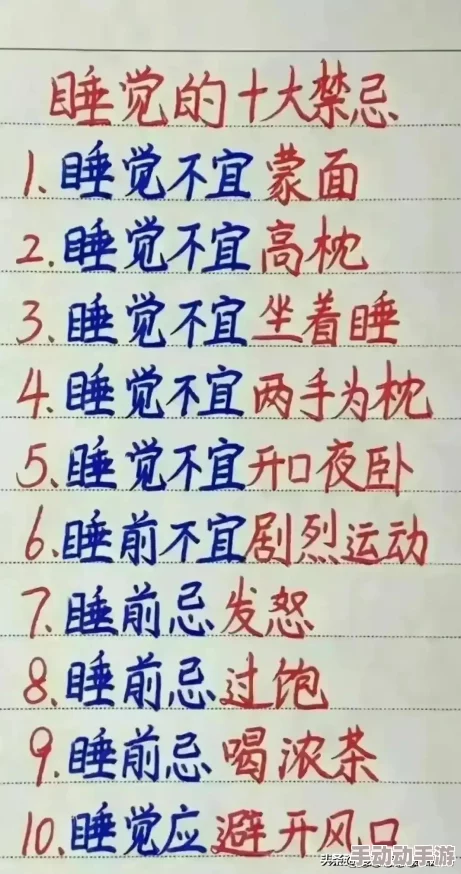 睡觉的十大禁忌
1.睡觉不宜蒙面
2.睡觉不宜高枕
3.睡觉不宜坐着睡
4.睡觉不宜两手为枕
5.睡觉不宜开口夜卧
6.睡前不宜剧烈运动
7.睡前忌发怒
8.睡前忌过饱
9.睡前忌喝浓茶
10.睡觉应避开风口
手动动手游